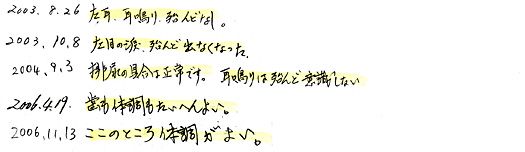 2003.8.26 左耳、耳鳴り、殆んどなし。
2003.10.8 左目の涙、殆んど出なくなった
2004.9.3 排尿の具合は正常です。耳鳴りは殆んど意識しない
2006.4.19. 体調もたいへんよい。
2006.11.13 ここのところ体調がよい。